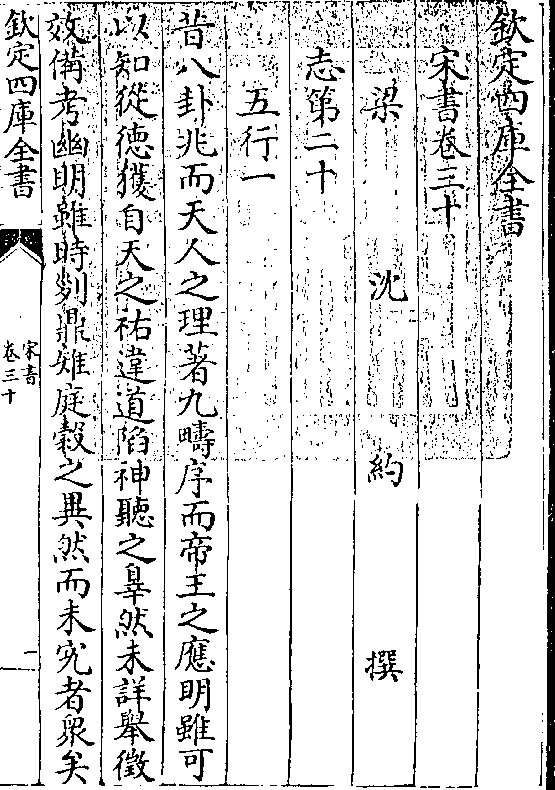 欽定四庫全書
宋書卷三十
梁 沈 約 撰
志第二十
五行一
昔八卦兆而天人之理著九疇序而帝王之應明雖可
以知從徳獲自天之祐違道陷神聽之辠然未詳舉徵
效備考幽明雖時列鼎雉庭榖之異然而未究者衆矣
欽定四庫全書
宋書
卷三十
一